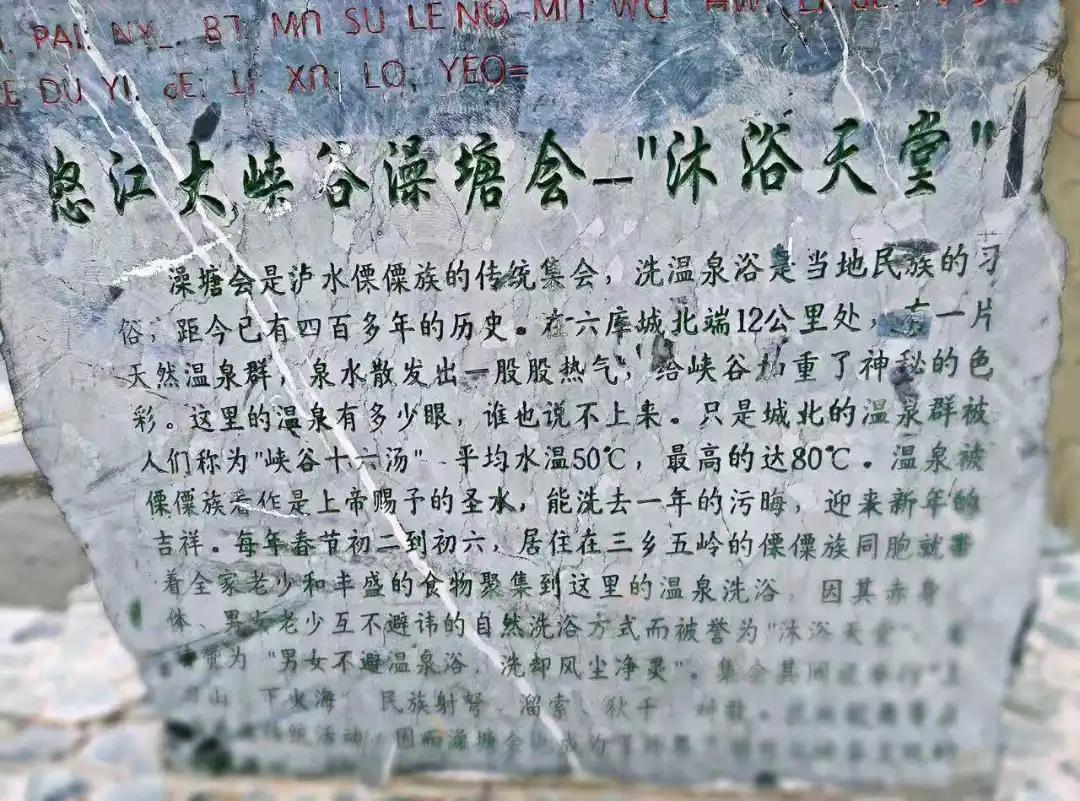 PAI NY_ BT MN SU LE NO MI WU
DU YI XN LO YEO=
怒江大峡谷澡塘会_"沐浴天堂"
澡塘会是泸水傈僳族的传统集会，洗温泉浴是当地民族的习
俗，距今已有四百多年的历史。在六库城北端12公里处，有一片
天然温泉群，泉水散发出一股股热气，给峡谷加重了神秘的色
彩。这里的温泉有多少眼，谁也说不上来。只是城北的温泉群被
人们称为"峡谷十六汤" 平均水温50℃，最高的达80℃。温泉被
傈僳族看作是上帝赐予的圣水，能洗去一年的污晦，迎来新年的
吉祥。每年春节初二到初六，居住在三乡五岭的傈僳族同胞就带
着全家老少和丰盛的食物聚集到这里的温泉洗浴，因其赤身
体、男女老少互不避讳的自然洗浴方式而被誉为"沐浴天堂"
赞为"男女不避温泉浴，洗却风尘净灵"。集会其间还举行"上
刀山、下火海"民族射弩、溜索、秋千、对歌、
传统活动，因而澡塘会